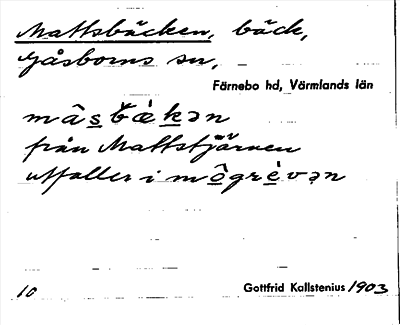 Mattsbäcken, bäck,
Gåsborns sn,
Färnebo hd, Värmlands län
mâsbǽkən
från Mattstjärnen
utfaller i môgrèvən
10 Gottfrid Kallstenius 1903